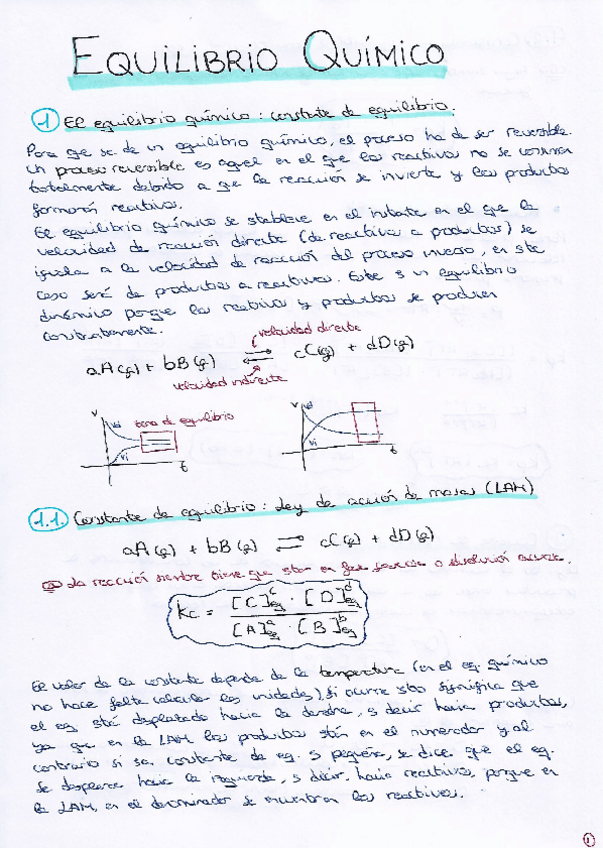 EQUILIBRIO QUÍMICO
1 El equilibrio químico: constante de equilibrio.
Para que se de un equilibrio químico, el proceso ha de ser reversible.
Un proceso reversible es aquel en el que los reactivos no se consumen
totalmente debido a que la reacción se invierte y los productos
forman reactivos.
El equilibrio químico se stablece en el instante en el que la
velocidad de reacción directa (de reactivos a productos) se
iguala a la velocidad de reacción del proceso inverso, en ste
caso será de productos a reactivos. Este s un equilibrio
dinámico porque los reactivos y productos se producen
constantemente.
velocidad directa
aA(g) + bB(g) ⇌ cC(g) + dD(g)
velocidad indirecta
v vd zona de equilibrio v vd
vi t vi t
1.1. Constante de equilibrio: Ley de acción de masas (LAM)
aA(g) + bB(g) ⇌ cC(g) + dD(g)
La reacción siempre tiene que star en fase gaseosa o disolución acuosa.
Kc = [C]^c eq · [D]^d eq / [A]^a eq · [B]^b eq
El valor de la constante depende de la temperatura (en el eq. químico
no hace falta calcular las unidades), si ocurre sto significa que
el eq. stá desplazado hacia la derecha, s decir hacia productos,
ya que en la LAM los productos stán en el numerador y al
contrario si su constante de eq. s pequeña, se dice que el eq.
se desplaza hacia la izquierda, s decir, hacia reactivos, porque en
la LAM, en el denominador se encuentran los reactivos.
1